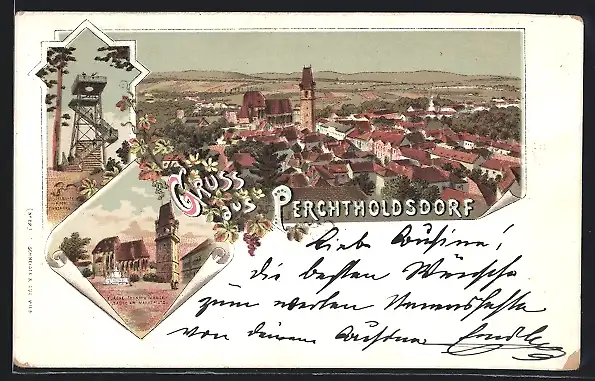 Gruss
aus
Perchtholdsdorf
Liebe Cousine!
die besten Wünsche
zum werten Namensfeste
von deiner Cousine